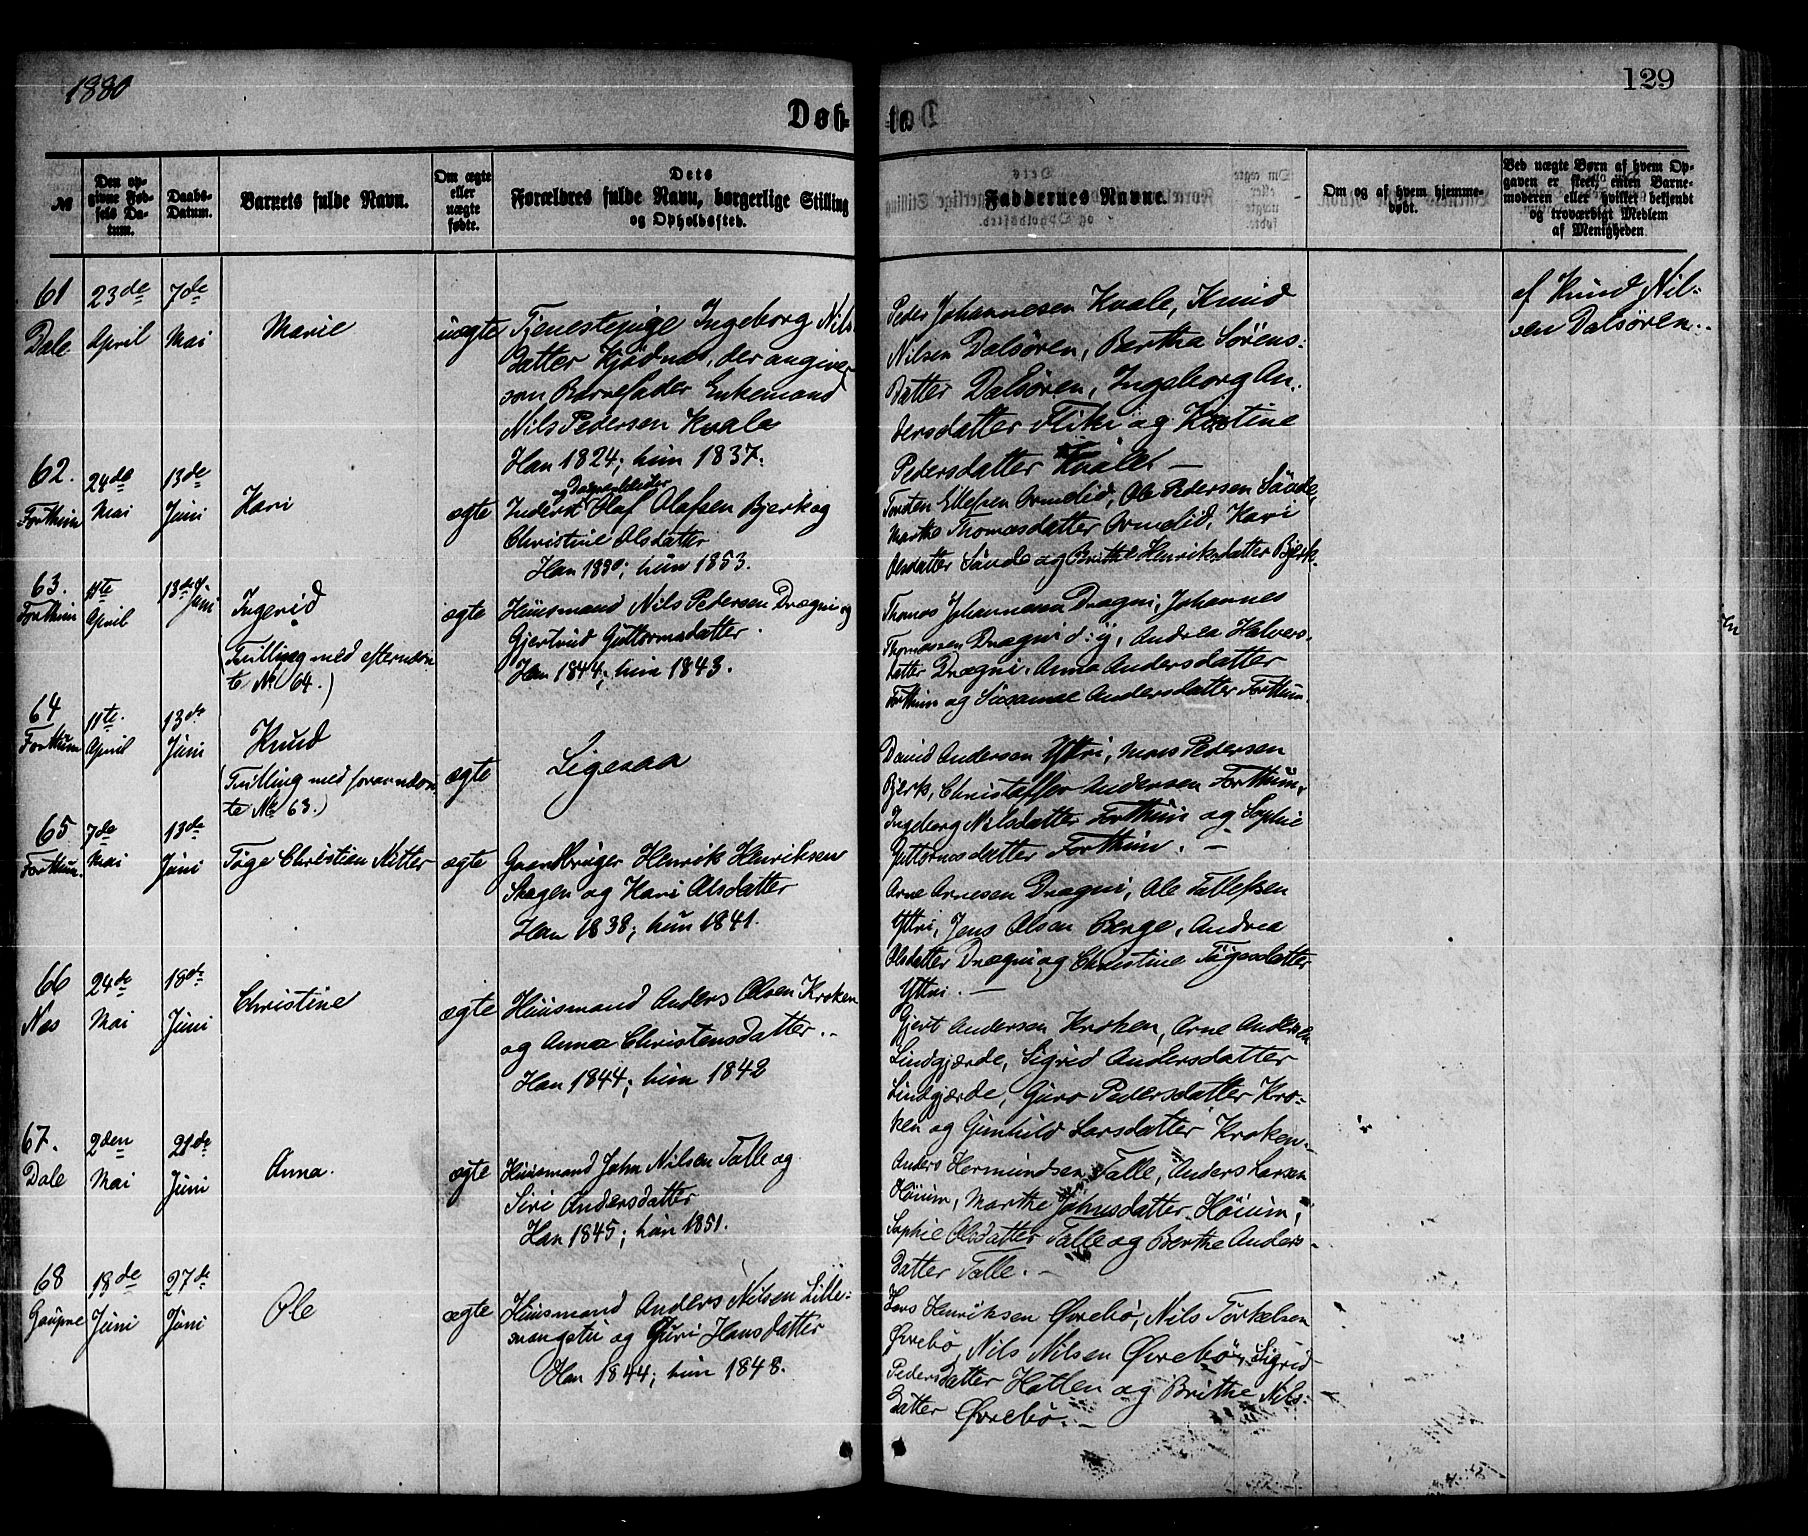 1880
129
Døb-
te
№
Den op-
givne Fød-
sels Da-
tum.
Daabs-
Datum.
Barnets fulde Navn.
Om ægte
eller
uægte
fødte.
Dets
Forældres fulde Navn, borgerlige Stilling
og Opholdssted.
Faddernes Navne.
Om og af hvem hjemme-
døbt.
Ved uægte Børn af hvem Op-
gaven er skeet, enten Barne-
moderen eller hvilket bekjendt
og troværdigt Medlem
af Menigheden
61 23de 7de
Dale April Mai Marie uægte
Tjenestepige Ingeborg Nils
datter Kjødnæs, der angiver
som Barnefader Enkemand
Nils Pedersen Kvale
Han 1824; hun 1837.
Peder Johannesen Kvale, Knud
Nilsen Dalsøren, Bertha Sørens-
datter Dalsøren, Ingeborg An-
dersdatter Fliki og Kistine
Pedersdatter Kvale. —
af Knud Nil-
sen Dalsøren.
62. 24de 13de
Forthun Mai Juni Kari ægte
og Dagarbeider
Inderst Olaf Olafsen Bjerk og
Christine Olsdatter
Han 1830; hun 1853.
Torsten Ellefsen Ormelid, Ole Pedersen Søvde,
Marthe Thomasdatter Ormelid, Kari
Olesdatter Søvde og Brithe Henriksdatter Bjerk.
63. 11te 13de
Forthun April Juni Ingerid ægte
(Tvilling med efternævn
te № 64.)
Huusmand Nils Pedersen Drægni og
Gjertrud Guttormsdatter.
Han 1844; hun 1843.
Thomas Johannesen Drægni, Johannes
Thomassen Drægni d: y, Andrea Halvors-
datter Drægni, Anna Andersdatter
Forthun og Susanne Andersdatter Forthun.
64 11te 13de
Forthun April Juni Knud ægte Ligesaa
(Tvilling med forannævn
te № 63.)
David Andersen Yttri, Mons Pedersen
Bjerk, Christoffer Andersen Forthun,
Ingeborg Nilsdatter Forthun og Sophie
Guttormsdatter Forthun. —
65 7de 13de
Forthun Mai Juni Tøge Christian Nitter ægte
Gaardbruger Henrik Henriksen
Skagen og Kari Olsdatter
Han 1838; hun 1841.
Arne Arnesen Drægni, Ole Tollefsen
Yttri, Jens Olsen Berge, Andrea
Olsdatter Drægni og Christine Tøgesdatter
Yttri. —
66 24de 18de
Næs Mai Juni Christine ægte
Huusmand Anders Olsen Kroken
og Anna Christensdatter.
Han 1844; hun 1842
Gjert Andersen Kroken, Arne Andersen
Lindgjærde, Sigrid Andersdatter
Lindgjærde, Guro Pedersdatter Kro-
ken og Gunhild Larsdatter Kroken.
67. 2den 21de
Dale Mai Juni Anna. ægte
Huusmand John Nilsen Talle og
Siri Andersdatter
Han 1845; hun 1851.
Anders Hermundsen Talle, Anders Larsen
Høium, Marthe Johnsdatter Høium,
Sophie Olsdatter Talle og Berthe Anders-
datter Talle. —
68 18de 27de
Gaupne Juni Juni Ole ægte
Huusmand Anders Nilsen Lille-
svangstu og Guri Hansdatter
Han 1844; hun 1848.
Lars Henriksen Øvrebø, Nils Torkelsen
Øvrebø, Nils Nilsen Øvrebø, Sigrid
Pedersdatter Hatlen og Brithe Nils-
datter Øvrebø. —